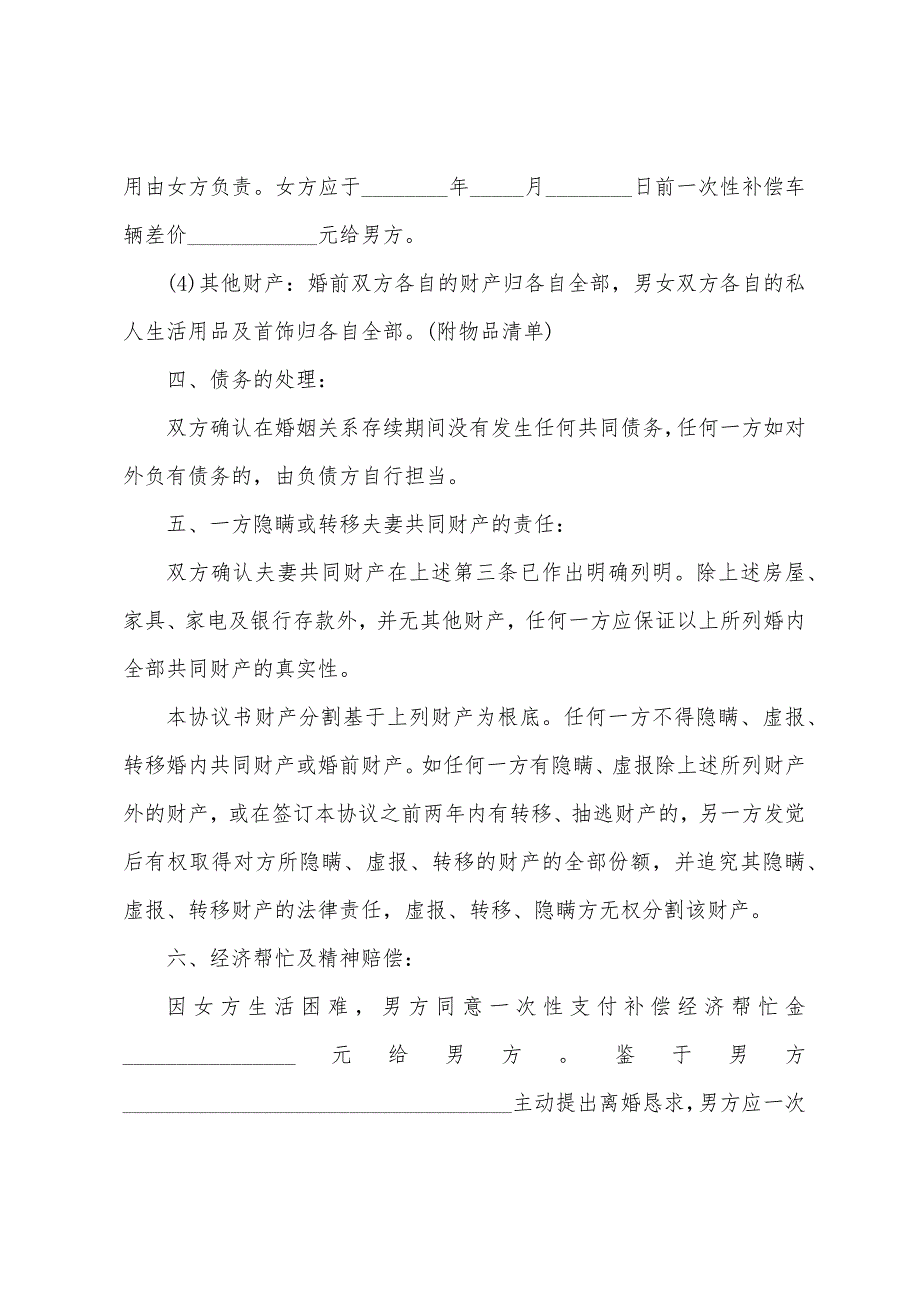 用由女方负责。女方应于________年_____月________日前一次性补偿车
辆差价____________元给男方。
(4)其他财产：婚前双方各自的财产归各自全部，男女双方各自的私
人生活用品及首饰归各自全部。(附物品清单)
四、债务的处理：
双方确认在婚姻关系存续期间没有发生任何共同债务，任何一方如对
外负有债务的，由负债方自行担当。
五、一方隐瞒或转移夫妻共同财产的责任：
双方确认夫妻共同财产在上述第三条已作出明确列明。除上述房屋、
家具、家电及银行存款外，并无其他财产，任何一方应保证以上所列婚内
全部共同财产的真实性。
本协议书财产分割基于上列财产为根底。任何一方不得隐瞒、虚报、
转移婚内共同财产或婚前财产。如任何一方有隐瞒、虚报除上述所列财产
外的财产，或在签订本协议之前两年内有转移、抽逃财产的，另一方发觉
后有权取得对方所隐瞒、虚报、转移的财产的全部份额，并追究其隐瞒、
虚报、转移财产的法律责任，虚报、转移、隐瞒方无权分割该财产。
六、经济帮忙及精神赔偿：
因女方生活困难，男方同意一次性支付补偿经济帮忙金
________________元给男方。鉴于男方
____________________________________主动提出离婚恳求，男方应一次